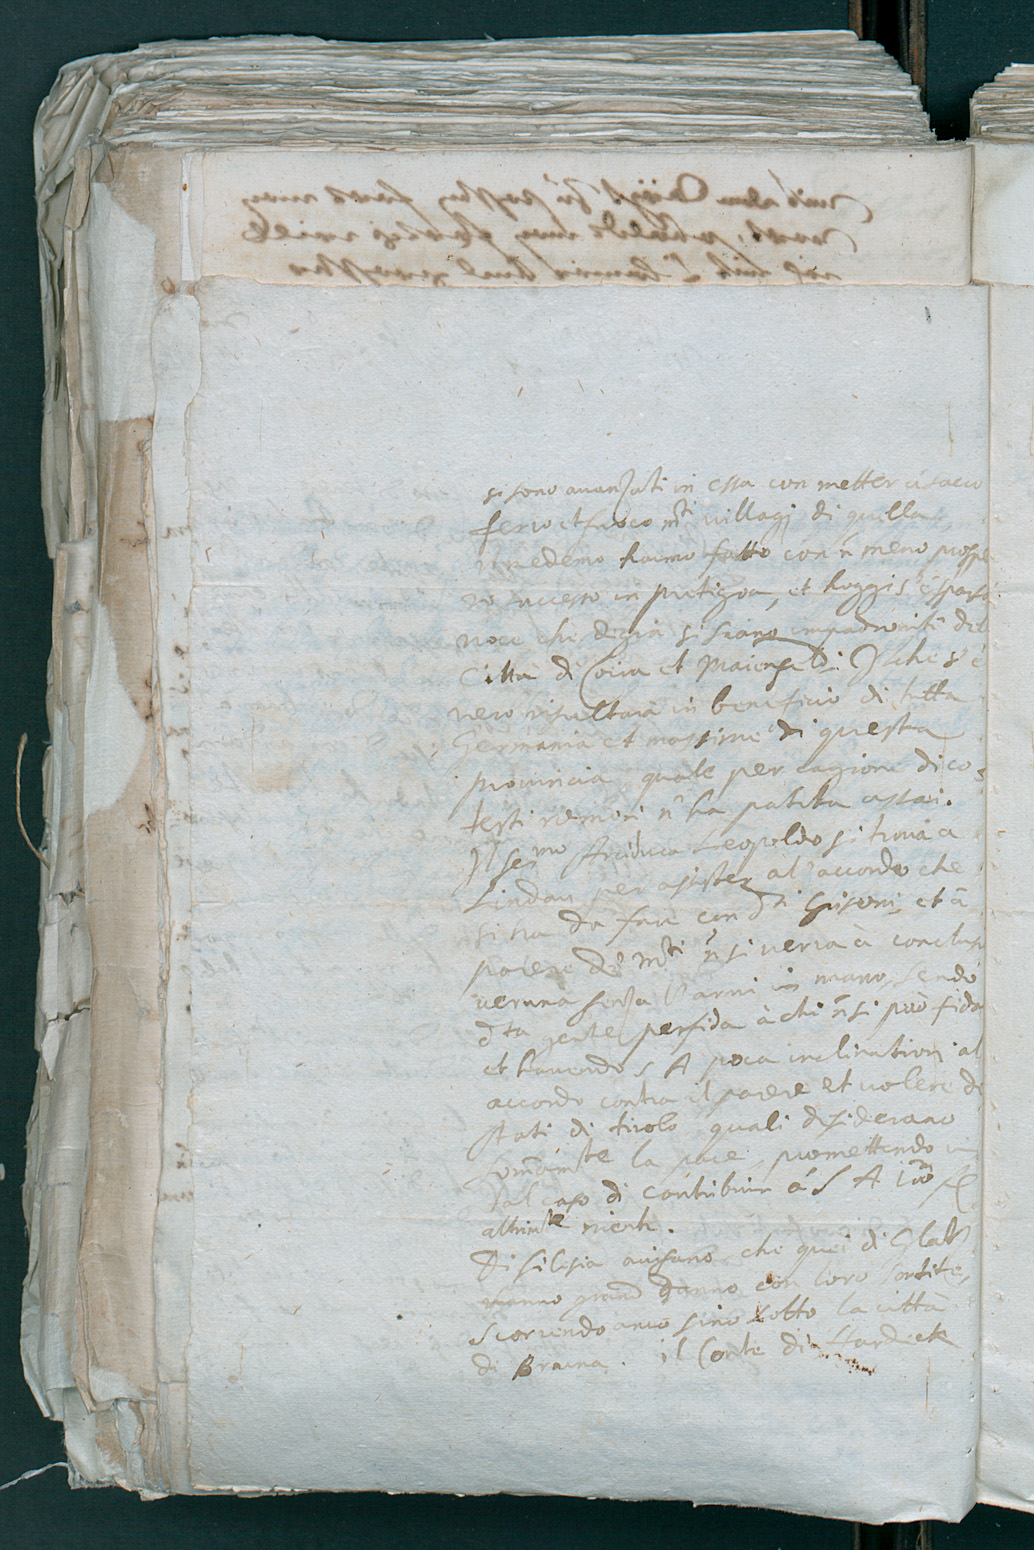 si sono avanzati in essa con metter à sacco
ferro et fuoco mti villagi di quella,
il medemo hanno fatto con ñ meno prospe
ro successo in pretigoa, et hoggi s'è sparsa
voce che degia si siano impadroniti del
Città di Coira et Maienfeldt. Il che s'è
vero risultarà in beneficio di tutta
Germania et massime di questa
provincia quale per cagione di co,
testi rumori n'ha patita assai.
Il Sermo Arciduca Leopoldo si trova a
Lindau per assister al'accordo che
si ha da fare con dti Grisoni, et à
parere de mti ñ si verrà à conclus
veruna senza l'armi in mano, sendo
dta gente perfida à chi ñ si può fida
et havendo S A poca inclination al
accordo contra il parere et volere de
stati di tirolo quali desiderano
sommamte la pace, promettendo in
tal caso di contribuir à S A
altrimte niente.
Di Silesia avisano che quei di Glatz
fanno grand danno con loro sortite,
scorrendo anco sino sotto la città
di Brauna. il Conte di Hardeck